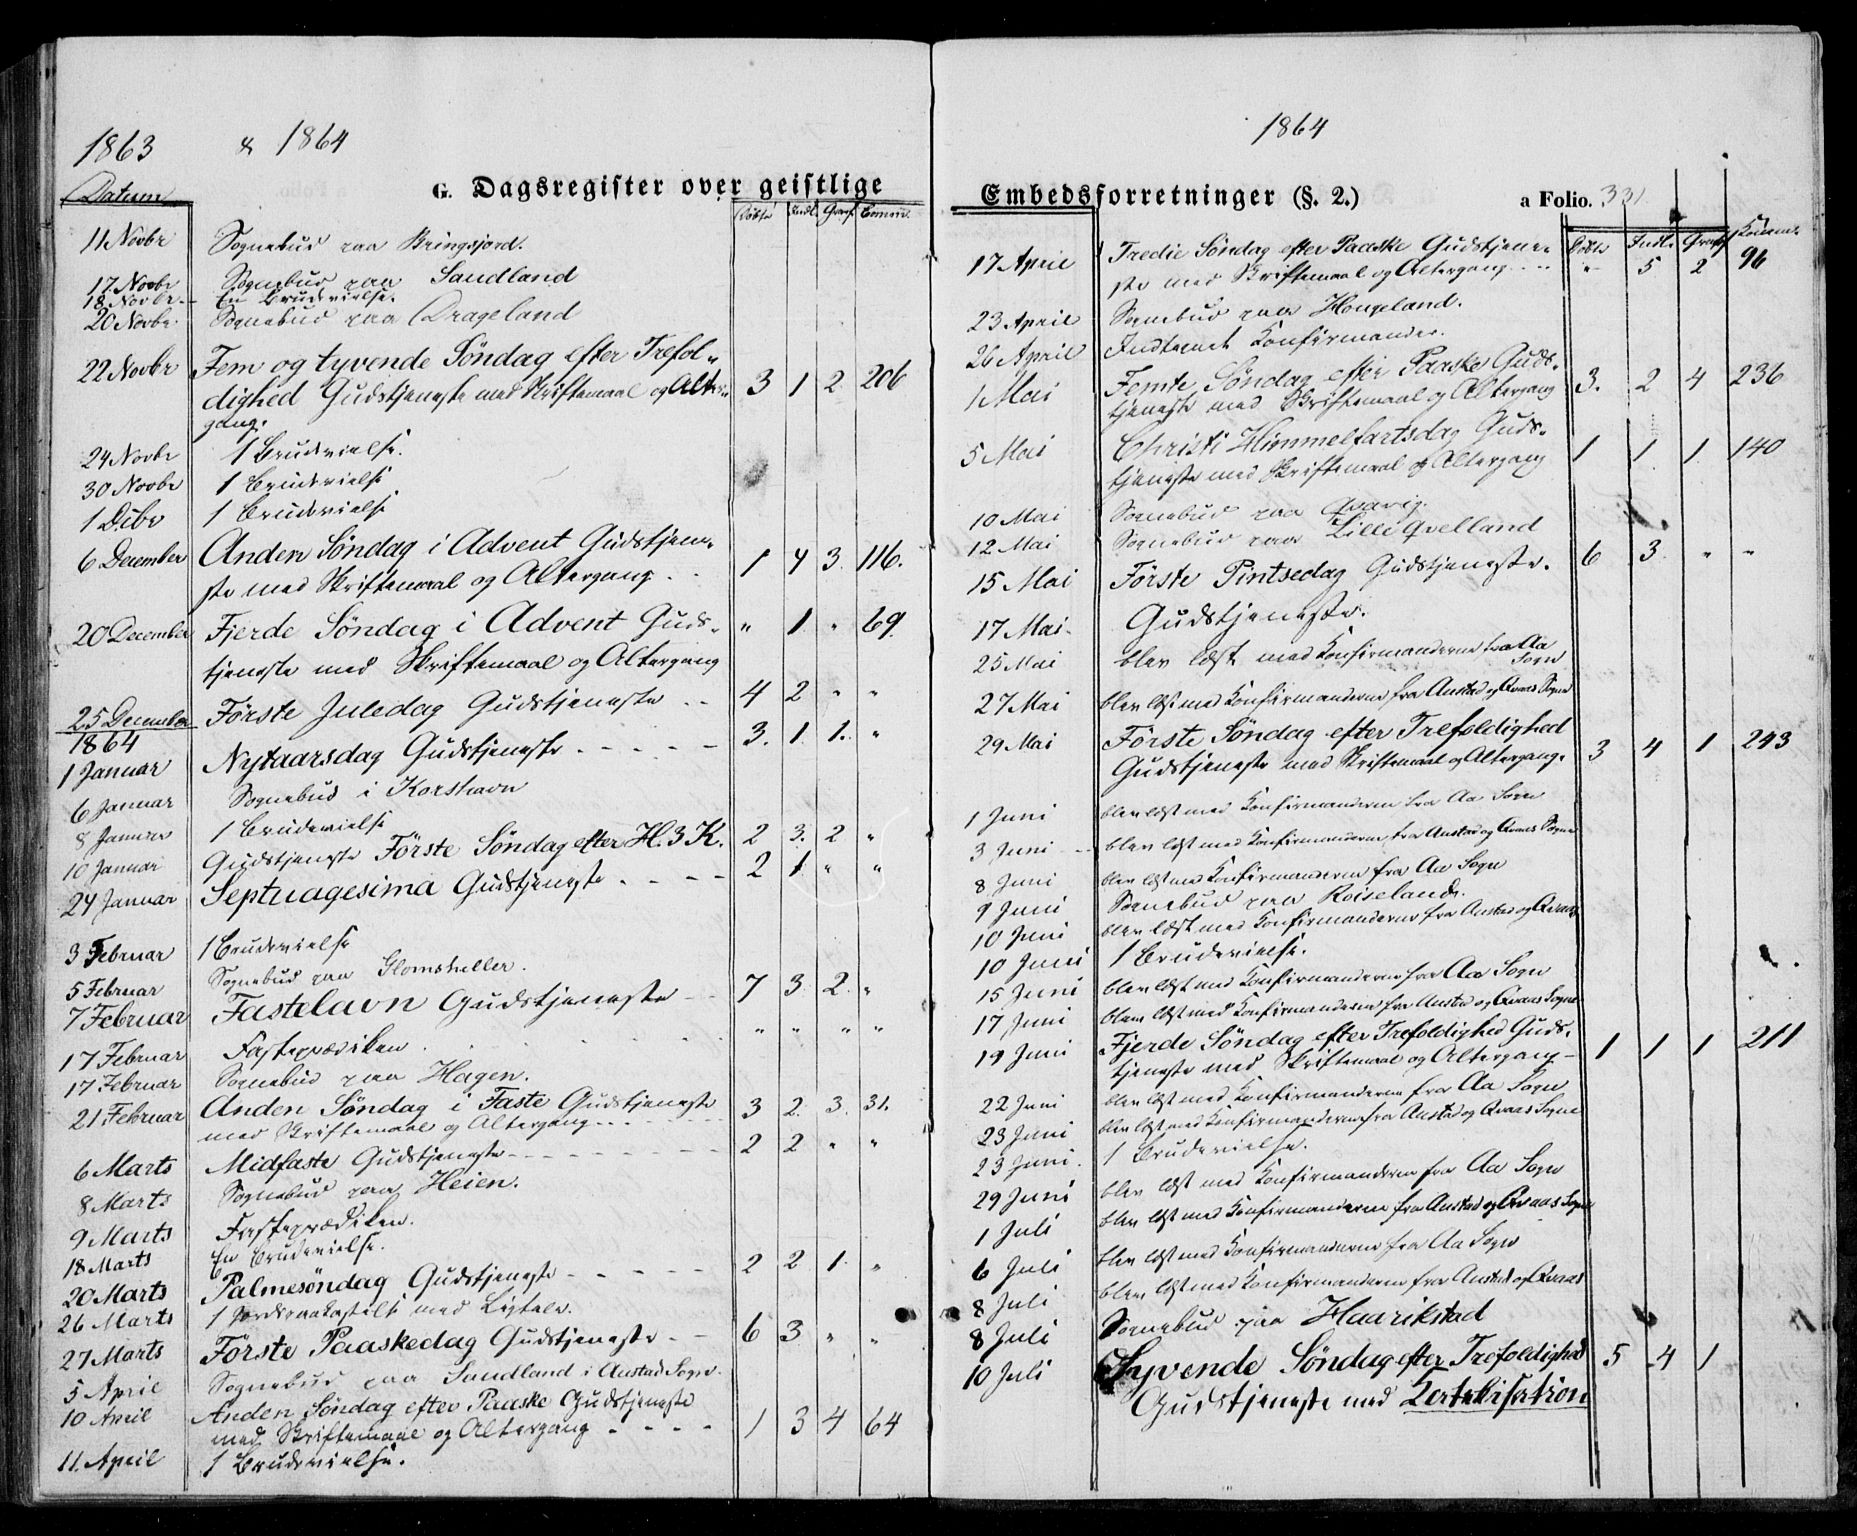 1863 & 1864
G. Dagsregister over geistlige
Datum Døbte Indl. Graf. Comm.
11 Novbr Sognebud paa Kringsjord.
17. Novbr Sognebud paa Sandland
18. Novbr. En Brudevielse.
20 Novbr. Sognebud paa Drageland
22 Novbr Fem og tyvende Søndag efter Trefol-
dighed Gudstjeneste med Skriftemaal og Alter- 3 1 2 206
gang.
24 Novbr 1 Brudevielse.
30 Novbr 1 Brudevielse
1 Dcbr 1 Brudevielse
6 December Anden Søndag i Advent Gudstjene-
ste med Skriftemaal og Altergang . . 1 4 3. 116.
20 December Fjerde Søndag i Advent Guds- " 1. " 69.
tjeneste med Skriftemaal og Altergang
25 December Første Juledag Gudstjeneste . . 4 2 " "
1864
1 Januar Nytaarsdag Gudstjeneste - - - - - 3. 1. 1. "
6 Januar Sognebud i Korshavn
8 Januar 1 Brudevielse
10 Januar Gudstjeneste Første Søndag efter H. 3 K. 2 3. 2 "
24 Januar Septuagesima Gudstjeneste . - - - 2 1 " "
3 Februar 1 Brudevielse
5 Februar Sognebud paa Glomsheller.
7 Februar Fastelavn Gudstjeneste - - 7 3. 2. "
17 Februar Fasteprædiken . . . . " " " "
17 Februar Sognebud paa Hagen.
21 Februar Anden Søndag i Faste Gudstjeneste 3 2. 3. 31.
med Skriftemaal og Altergang - - - - -
6 Marts Midfaste Gudstjeneste - - - - - - 2 2 " "
8 Marts Sognebud paa Heien.
9 Marts Fasteprædiken.
18 Marts En Brudevielse.
20 Marts Palmesøndag Gudstjeneste - - - - - 2 2 1. "
26 Marts 1 Jordpaakastelse med Ligtale.
27 Marts Første Paaskedag Gudstjeneste - - 6 3 " "
5 April Sognebud paa Sandland i Austad Sogn.
10 April Anden Søndag efter Paaske Gudstjeneste
med Skriftemaal og Altergang - - - - 1 3 4 64
11. April 1 Brudevielse.
1864
Embedsforretninger (§. 2.) a Folio. 331
Døbte Indl. Graf. Comm.
17 April Tredie Søndag efter Paaske Gudstjene-
ste med Skriftemaal og Altergang - - - " 5 2 96
23 April Sognebud paa Hougeland.
26 April Indtegnet Konfirmander.
1 Mai Femte Søndag efter Paaske Guds- 3. 2 4 236
tjeneste med Skriftemaal og Altergang
5 Mai Christi Himmelfartsdag Guds- 1 1. 1. 140
tjeneste med Skriftemaal og Altergang
10 Mai Sognebud paa Qvavig.
12 Mai Sognebud paa Lille Qvelland
15 Mai Første Pintsedag Gudstjeneste. 6 3. " "
17 Mai. Gudstjeneste.
25 Mai blev læst med Konfirmanderne fra Aa
Sogn
27 Mai blev læst med Konfirmanderne fra Austad og Qvaas Sogne
29 Mai Første Søndag efter Trefoldighed
Gudstjeneste med Skriftemaal og Altergang. 3 4 1 243
1 Juni blev læst med Konfirmanderne fra Aa Sogn
3 Juni - - blev læst med Konfirmanderne fra Austad og Qvaas Sogne
8 Juni blev læst med Konfirmanderne fra Aa Sogn
9 Juni Sognebud paa Roiseland.
10 Juni blev læst med Konfirmanderne fra Austad og Qvaas
10 Juni 1 Brudevielse.
15 Juni blev læst med Konfirmanderne fra Aa Sogn
17 Juni blev læst med Konfirmanderne fra Austad og Qvaas Sogne
19 Juni Fjerde Søndag efter Trefoldighed Guds-
tjeneste med Skriftemaal og Altergang - 1 1 1 211
22 Juni blev læst med Konfirmanderne fra Aa Sogn
23 Juni blev læst med Konfirmanderne fra Austad og Qvaas Sogne
23 Juni. 1 Brudevielse.
29 Juni blev læst med Konfirmanderne fra Aa Sogn
1 Juli blev læst med Konfirmanderne fra Austad og Qvaas Sogne
6 Juli blev læst med Konfirmanderne fra Aa Sogn
8 Juli blev læst med Konfirmanderne fra Austad og Qvaas
8 Juli Sognebud paa Haarikstad
10 Juli Syvende Søndag efter Trefoldighed 5 4 1
Gudstjeneste med Katekisation